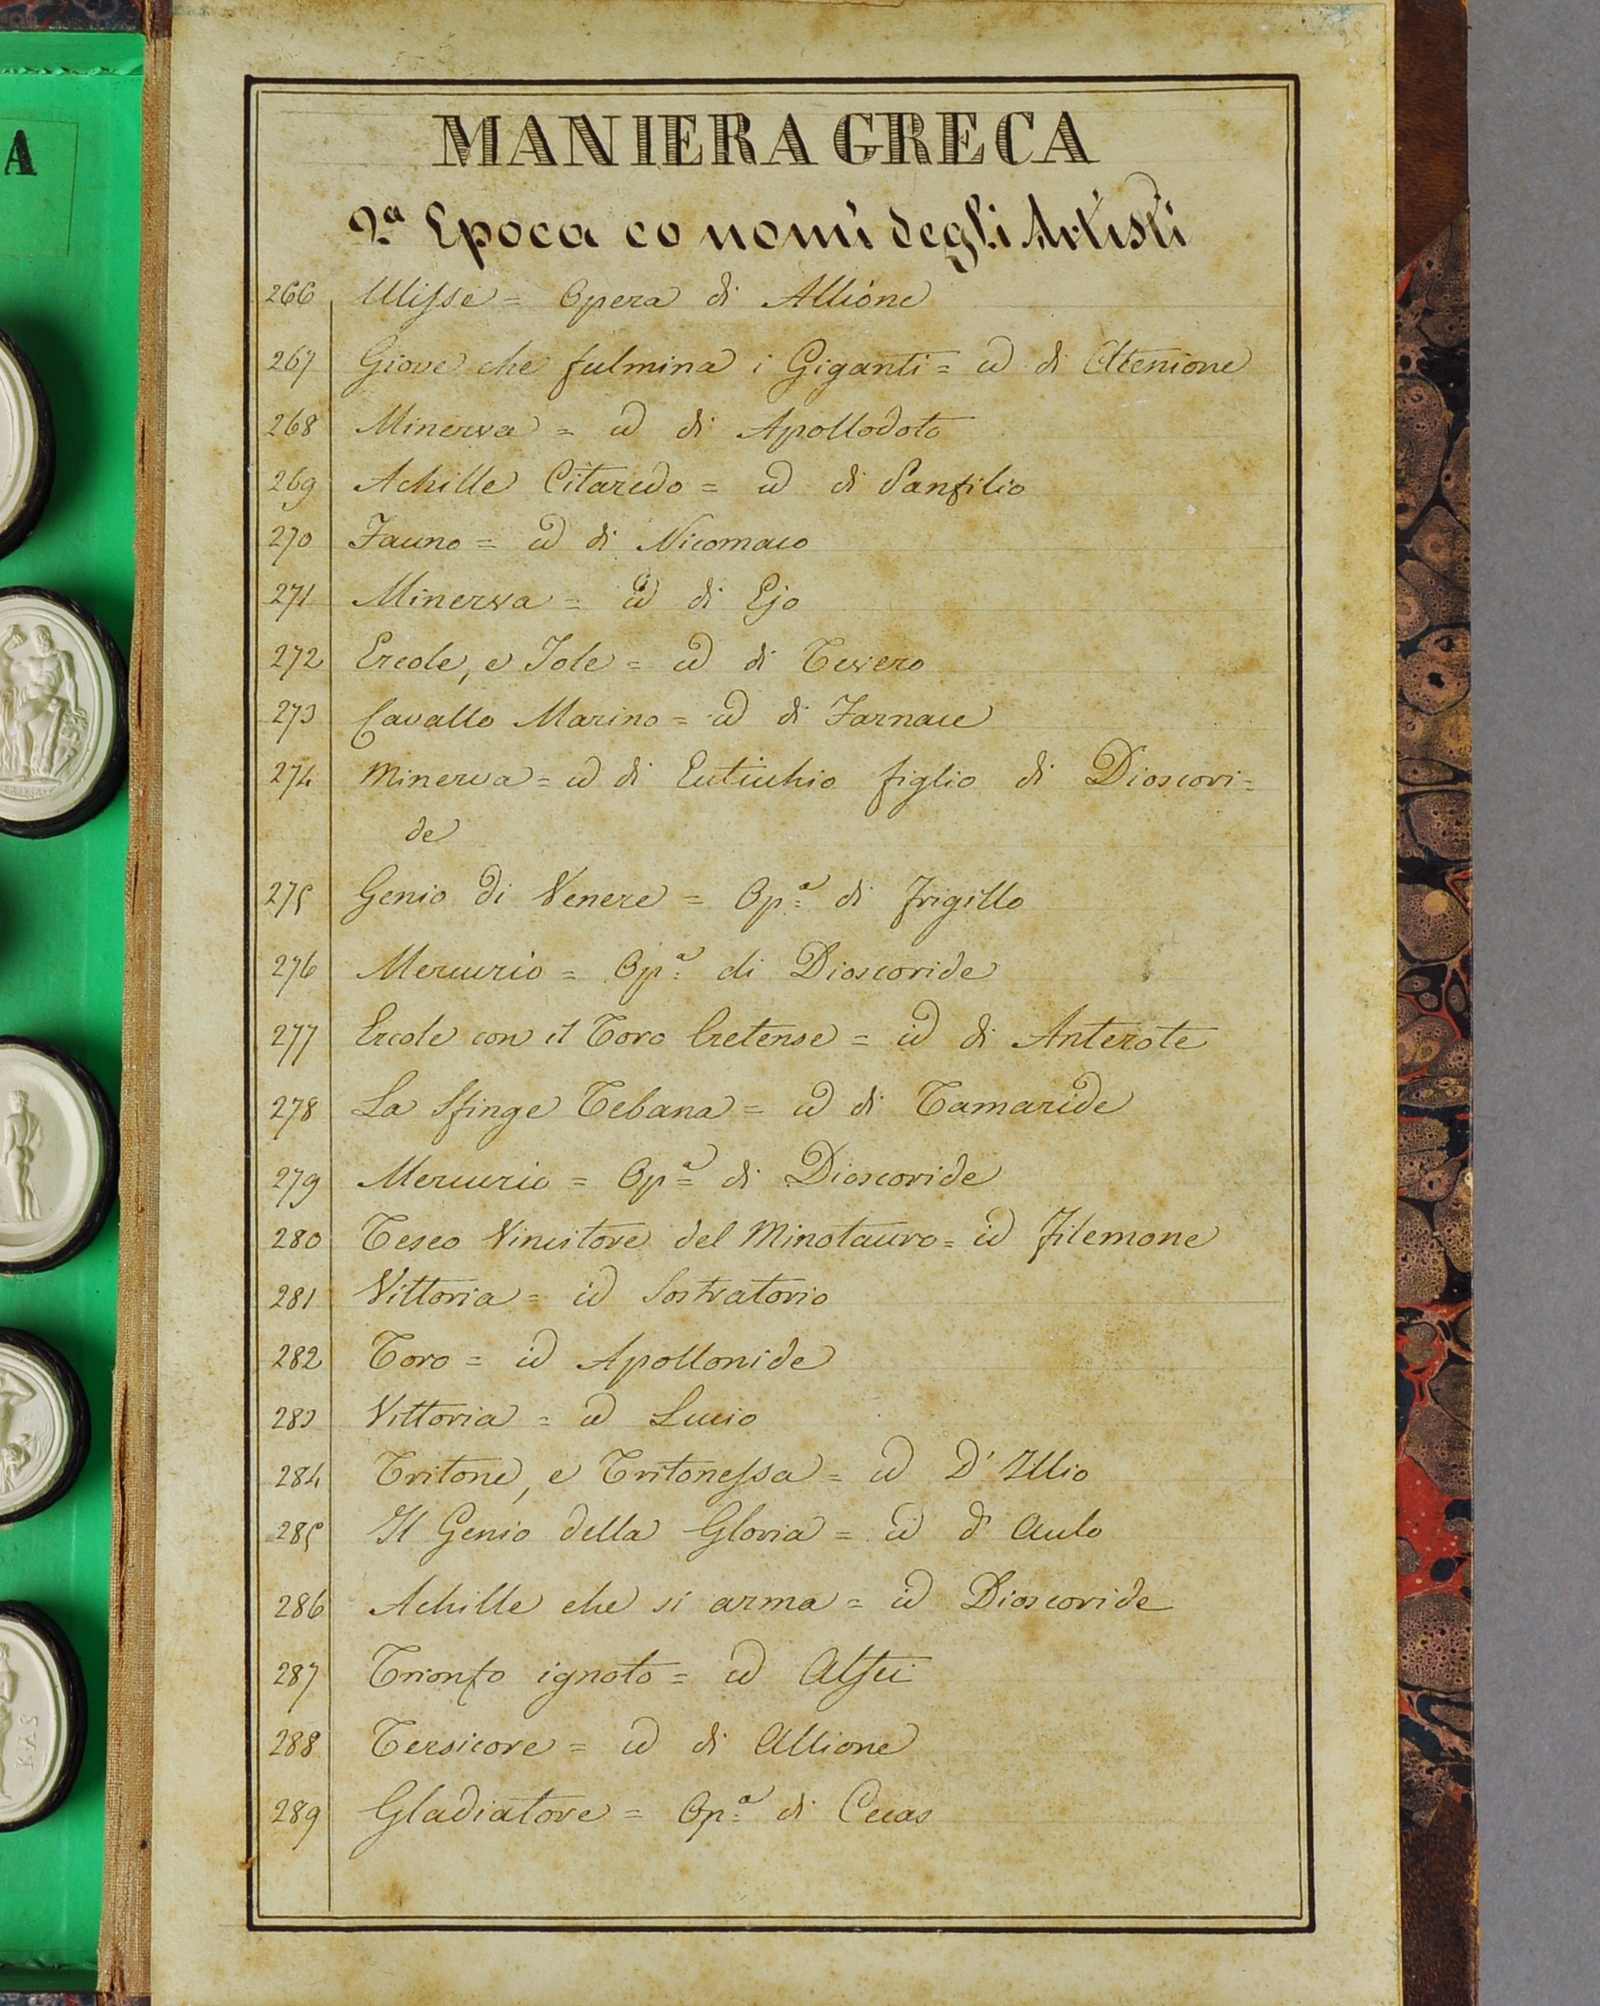 A
MANIERA GRECA
2.ª Epoca co nomi degli Artisti
266 Ulisse = Opera di Allióne
267 Giove che fulmina i Giganti = id di Attenione
268 Minerva = id di Apollodoto
269 Achille Citaredo = id di Panfilio
270 Fauno = id di Nicomaco
271 Minerva = id di Ejo
272 Ercole, e Jole = id di Tevero
273 Cavallo Marino = id di Farnace
274 Minerva = id di Euticchio figlio di Dioscori=
de
275 Genio di Venere = Op.ª di Frigillo
276 Mercurio = Op.ª di Dioscoride
277 Ercole con il Toro Cretense = id di Anterote
278 La Sfinge Tebana = id di Tamaride
279 Mercurio = Op.ª di Dioscoride
280 Teseo Vincitore del Minotauro = id Filemone
281 Vittoria = id Sostratorio
282 Toro = id Apollonide
283 Vittoria = id Lucio
284 Tritone, e Tritonessa = id D' Illio
285 Il Genio della Gloria = id d' Aulo
286 Achille che si arma = id Dioscoride
287 Trionfo ignoto = id Alfei
288 Tersicore = id di Allione
289 Gladiatore = Op.ª di Cecas